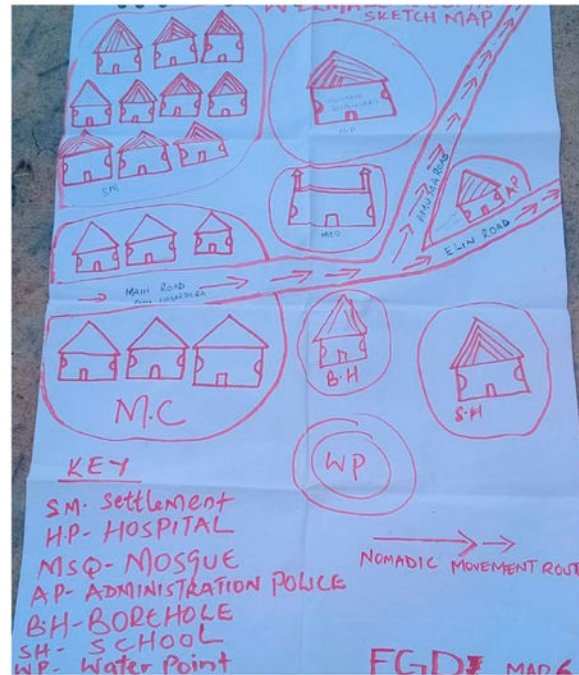 SKETCH MAP
H.P
SM
AMUMA ROAD
AP
ELIN ROAD
MAIN ROAD
B.H
S.H
M.C
WP
KEY
SM. Settlement
H.P- HOSPITAL
MSQ- MOSQUE
AP- ADMINISTRATION POLICE
B.H- BOREHOLE
SH- SCHOOL
WP- Water Point
NOMADIC MOVEMENT ROUT
FGD MAP 6